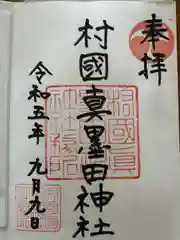 奉拝
村國真墨田神社
令和五年 九月九日